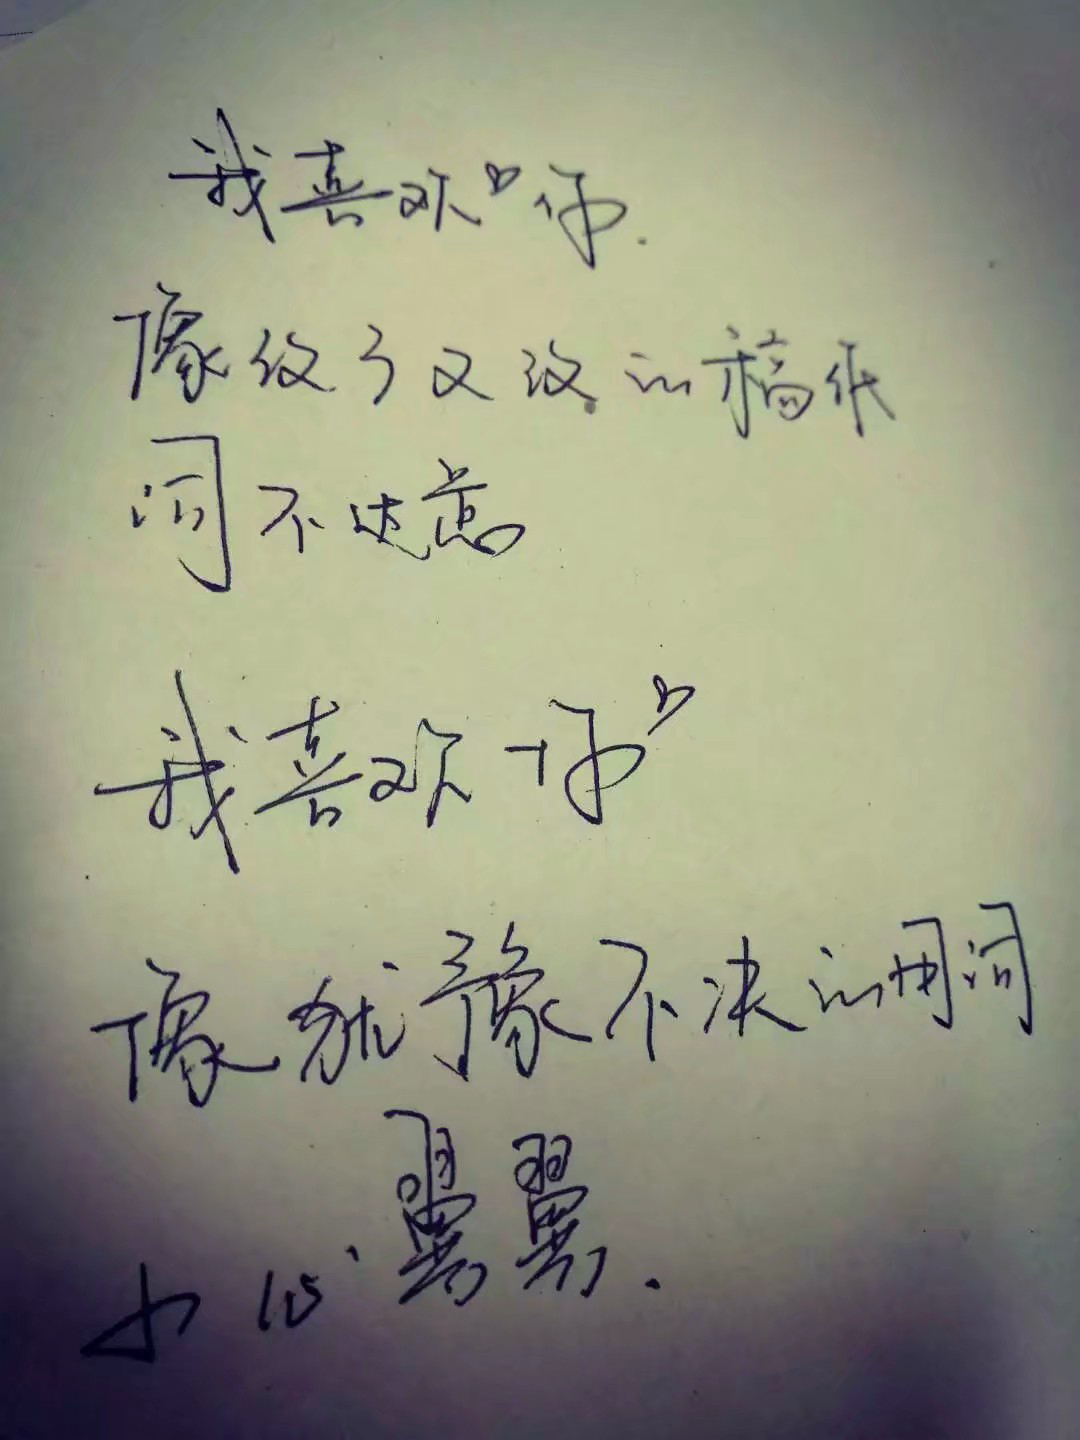 我喜欢你.
像改了又改的稿纸
词不达意
我喜欢你
像犹豫不决的用词
小心翼翼.